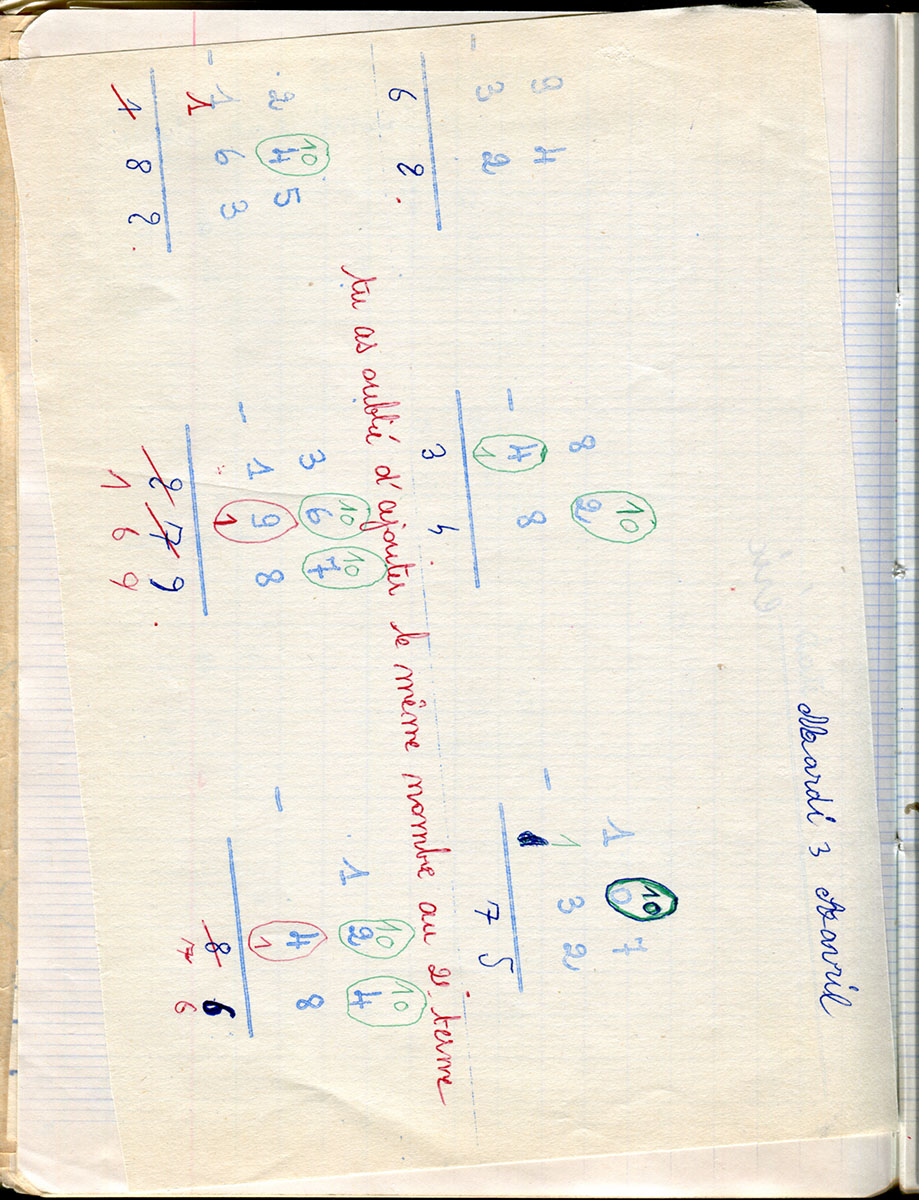 Mardi 3 Avril
10 10
9 4 8 2 1 0 7
- 3 2 - 4 8 - 1 3 2
1
6 2 3 4 7 5
tu as oublié d'ajouter le même nombre au 2e. terme
10 10 10 10 10
2 4 5 3 6 7 1 2 4
- 1 6 3 - 1 9 8 - 4 8
1 1 1
1 8 2 2 7 9 8 6
1 6 9 7 6